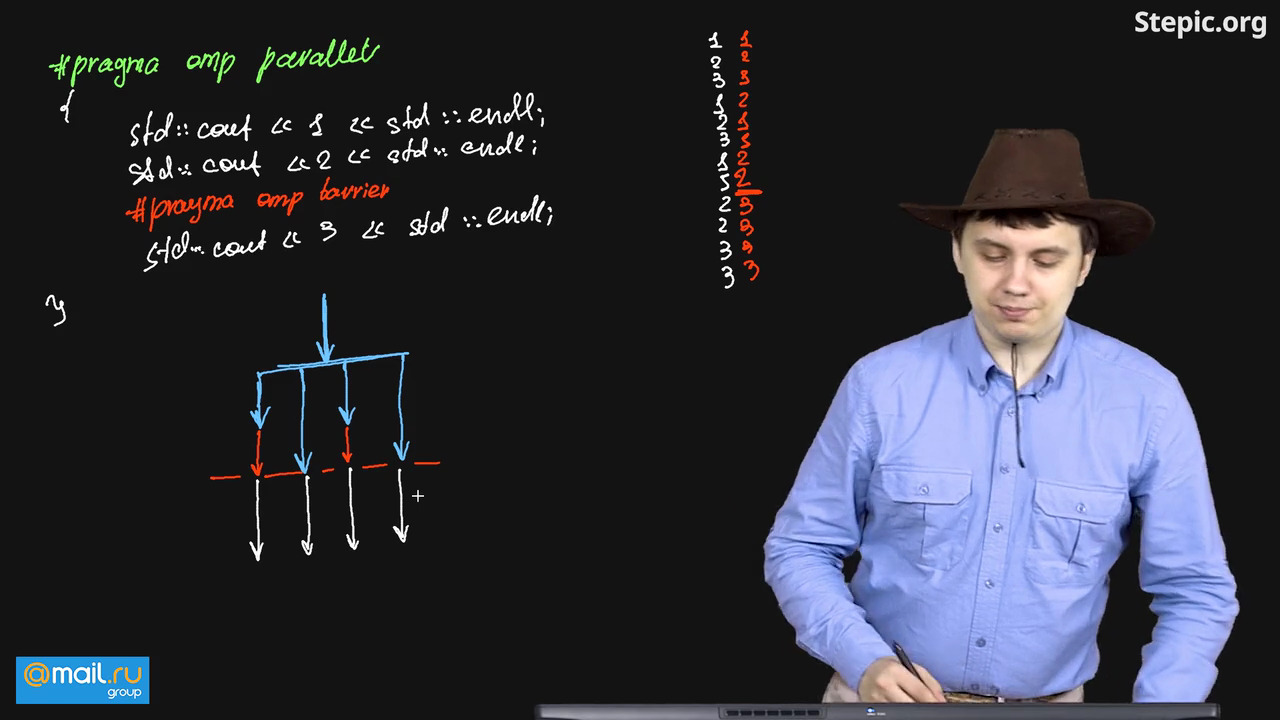 Stepic.org
#pragma omp parallel
{
std::cout << 1 << std::endl;
std::cout << 2 << std::endl;
#pragma omp barrier
std::cout << 3 << std::endl;
}
1 1
2 2
3 3
1 2
2 1
3 3
1 2
3 2
2 3
2 3
3 3
3 3
@mail.ru
group